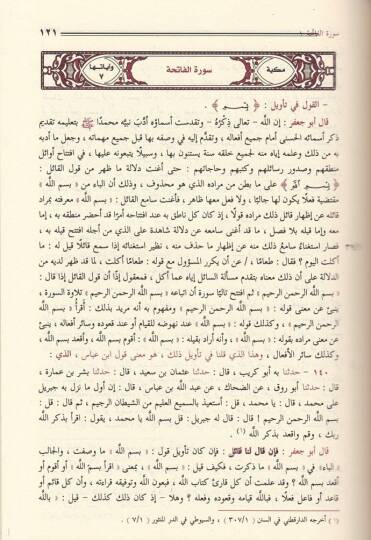 سورة الفاتحة ١٢١
مكية سورة الفاتحة وآياتها ٧
– القول في تأويل : ﴿ بِسْمِ ﴾ .
قال أبو جعفر : إن الله – تعالى ذِكْرُهُ – وتقدست أسماؤه أدَّبَ نبيَّه محمدًا ﷺ بتعليمه تقديم
ذكر أسمائه الحسنى أمام جميع أفعاله ، وتقدَّم إليه في وصفه بها قبل جميع مهماته ، وجعل ما أدبه
به من ذلك وعلمه إياه منه لجميع خلقه سنة يستنون بها ، وسبيلًا يتبعونه عليها ، في افتتاح أوائل
منطقهم وصدور رسائلهم وكتبهم وحاجاتهم : حتى أغنت دلالة ما ظهر من قول القائل :
﴿ بِسْمِ اللَّهِ ﴾ على ما بطن من مراده الذي هو محذوف ، وذلك أن الباء من « بسم الله »
مقتضية فعلًا يكون لها جالبًا ، ولا فعل معها ظاهر ، فأغنت سامع القائل : « بسم الله » معرفته بمراد
قائله عن إظهار قائل ذلك مراده قولًا ، إذ كان كل ناطق به عند افتتاحه أمرًا قد أحضر منطقه به ، إما
معه وإما قبله بلا فصل ، ما قد أغنى سامعه عن دلالة شاهدة على الذي من أجله افتتح قيله به ،
فصار استغناءُ سامعِ ذلك منه عن إظهار ما حذف منه ، نظير استغنائه إذا سمع قائلًا قيل له : ما
أكلت اليوم ؟ فقال : طعامًا ، / عن أن يكرر المسؤول مع قوله : طعامًا أكلت ، لما قد ظهر لديه من
الدلالة على أن ذلك معناه بتقدم مسألة السائل إياه عما أكل ، فمعقول إذًا أن قول القائل إذا قال :
« بسم الله الرحمن الرحيم » ثم افتتح تاليًا سورة أن اتباعه « بسم الله الرحمن الرحيم » تلاوة السورة ،
ينبئ عن معنى قوله : « بسم الله الرحمن الرحيم » ومفهوم به أنه مريد بذلك : أقرأُ « بسم الله
الرحمن الرحيم » ، وكذلك قوله : « بسم الله » عند نهوضه للقيام أو عند قعوده وسائر أفعاله ، ينبئ
عن معنى مراده بقوله : « بسم الله » ، وأنه أراد بقيله : « بسم الله » : أقوم بسم الله ، وأقعد بسم الله ،
وكذلك سائر الأفعال ، وهذا الذي قلنا في تأويل ذلك ، هو معنى قول ابن عباس ، الذي :
١٤٠ – حدثنا به أبو كريب ، قال : حدثنا عثمان بن سعيد ، قال : حدثنا بشر بن عمارة ،
قال : حدثنا أبو روق ، عن الضحاك ، عن عبد الله بن عباس ، قال : إن أول ما نزل به جبريل
على محمد ، قال : يا محمد ، قل : أستعيذ بالسميع العليم من الشيطان الرجيم ، ثم قال : قل :
بسم الله الرحمن الرحيم ! قال : قال له جبريل : قل بسم الله يا محمد ، يقول : اقرأ بذكر الله
ربك ، وقم واقعد بذكر الله (١) .
قال أبو جعفر : فإن قال لنا قائل : فإن كان تأويل قول : « بسم الله » ما وصفت ، والجالب
« الباء » في « بسم الله » ما ذكرت ، فكيف قيل : « بسم الله » ، بمعنى اقرأ بسم الله » أو أقوم أو
أقعد بسم الله ؟ وقد علمت أن كل قارئ كتاب الله ، فبعون الله وتوفيقه قراءته ، وأن كل قائم أو
قاعد أو فاعل فعلًا ، فبالله قيامه وقعوده وفعله ؟ وهلا – إذ كان ذلك كذلك – قيل : « بالله
(١) أخرجه الدارقطني في السنن (٣٠٧/١) ، والسيوطي في الدر المنثور (٧/١) .